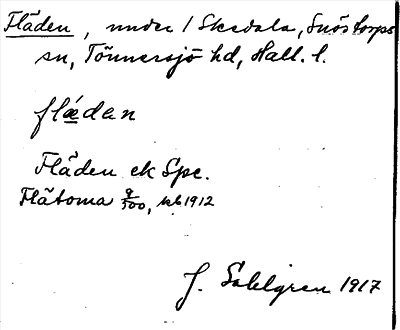 Fläden, under 1 Skedala, Snöstorps
sn, Tönnersjö hd, Hall. l.
flǽdan
Fläden ek Spc.
Flätorna 9/500, kb 1912
J. Sahlgren 1917